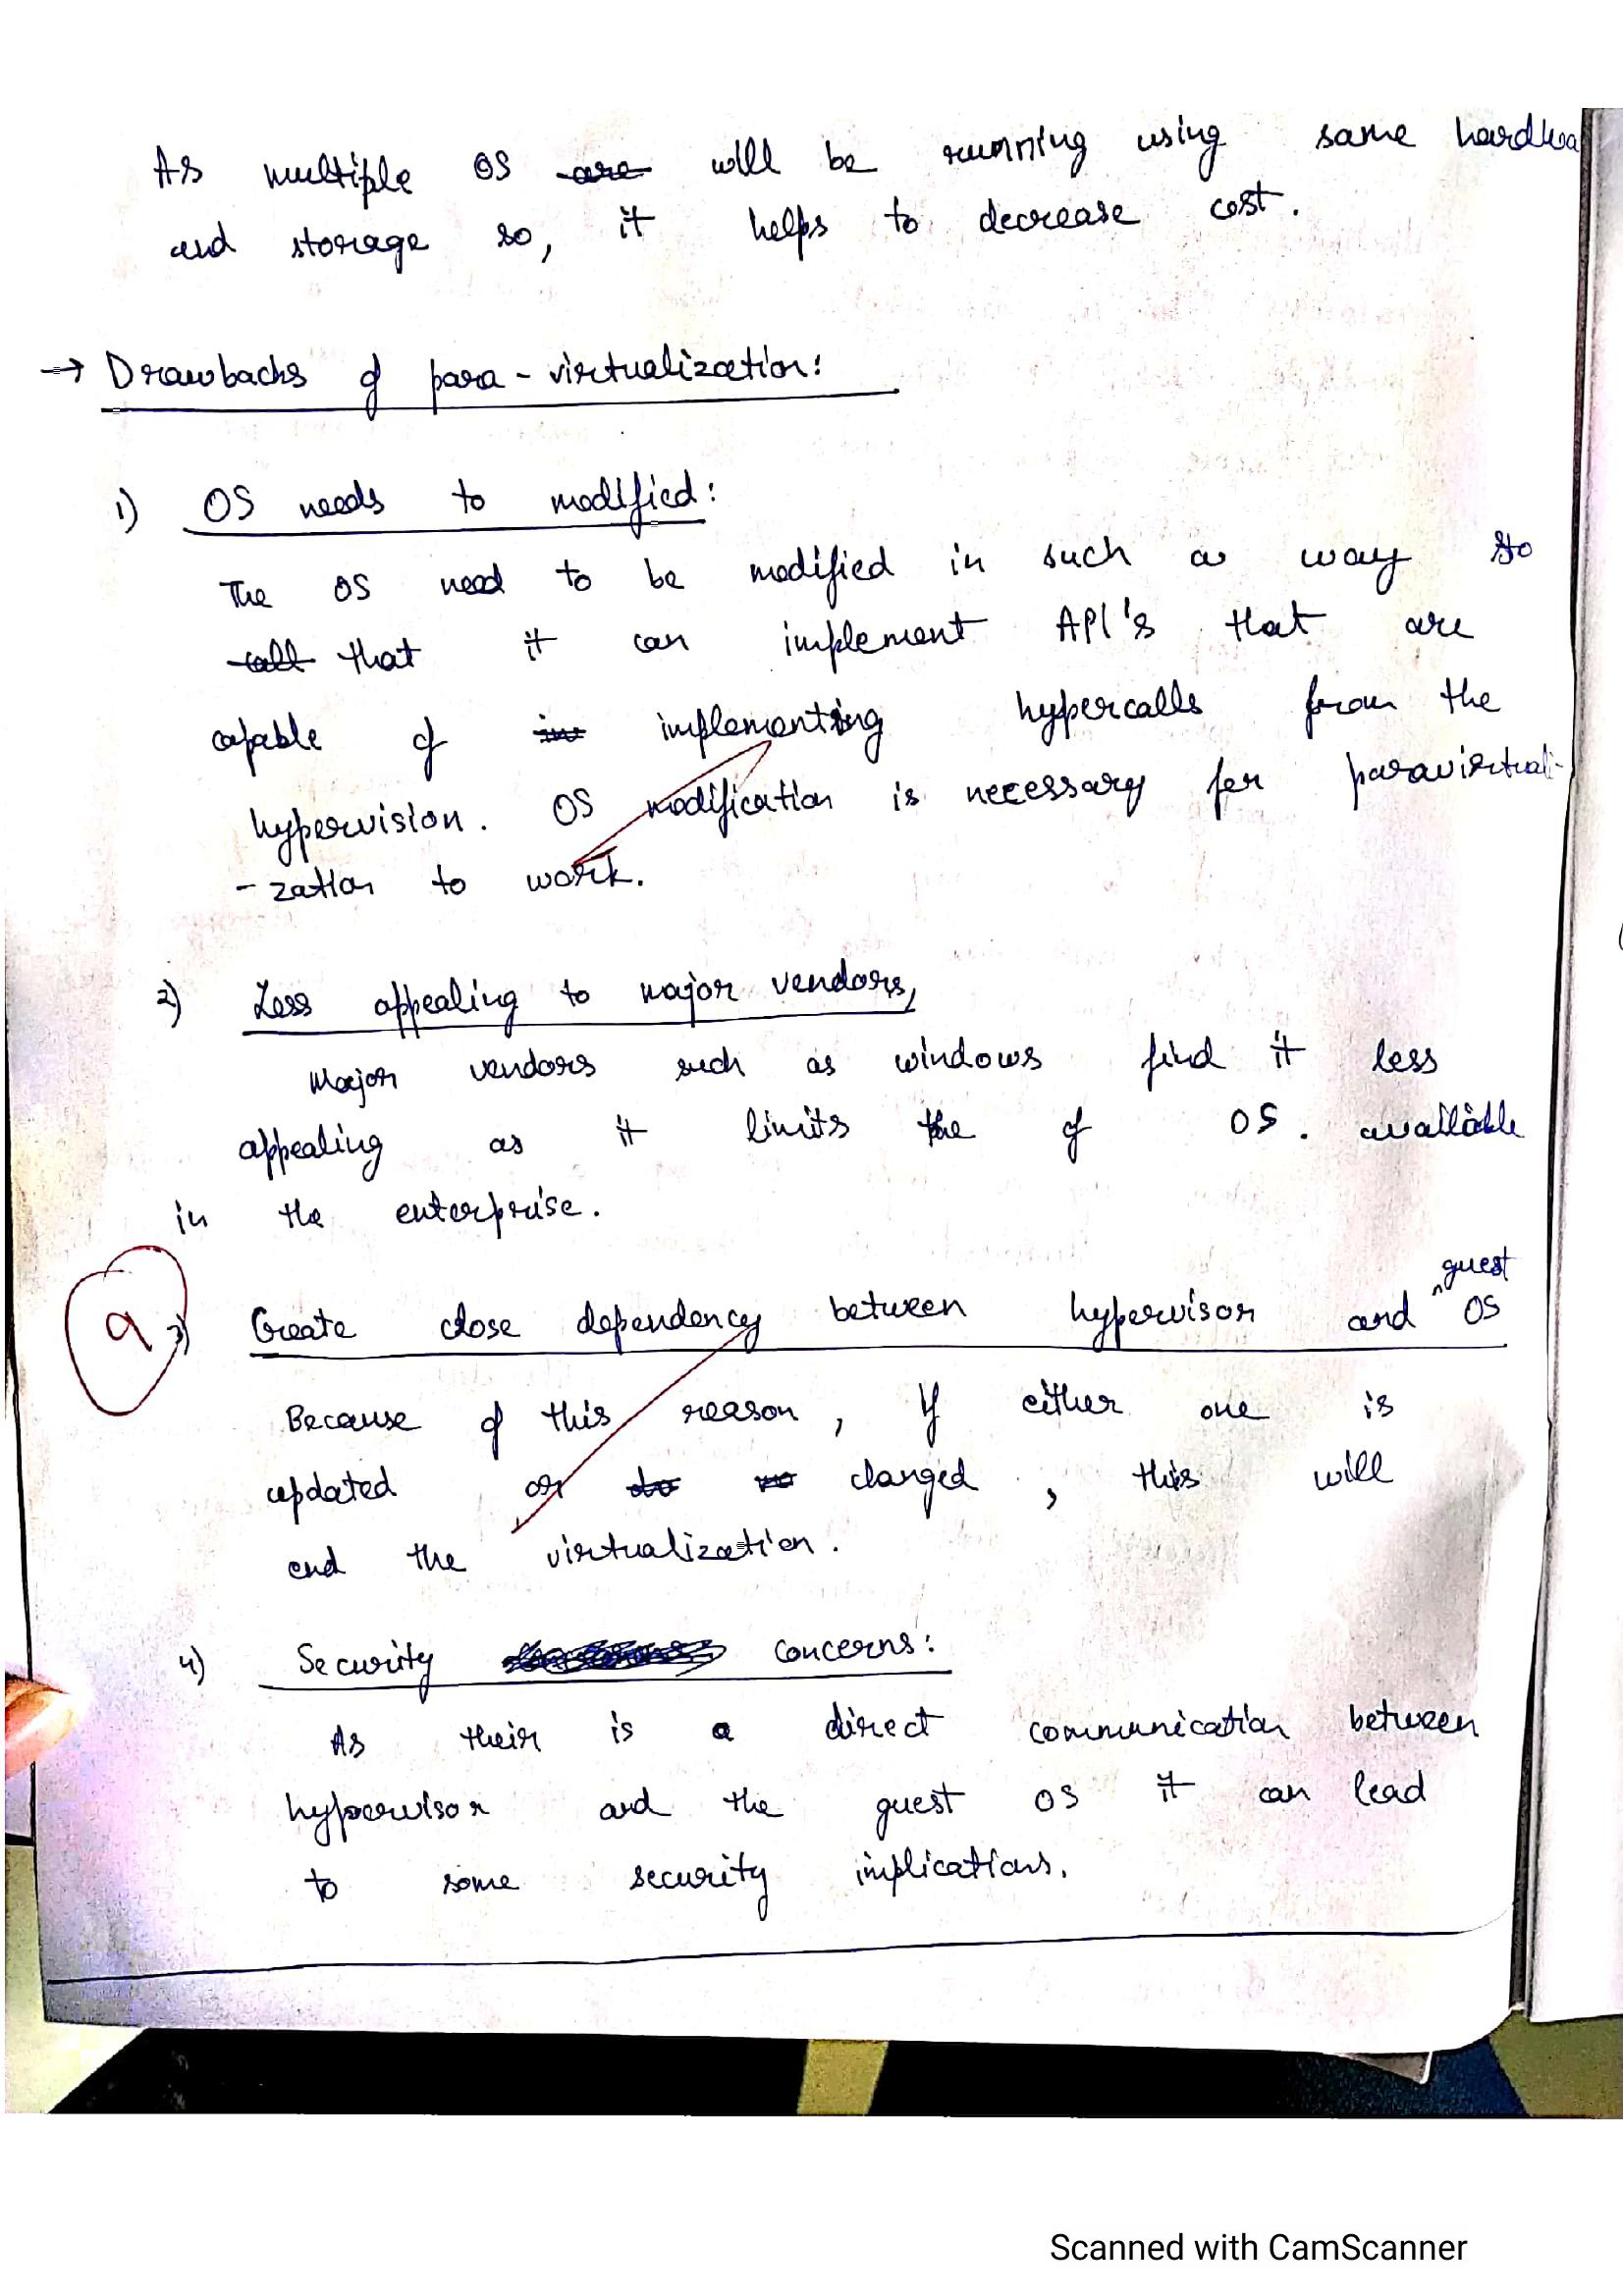 As multiple OS are will be running using same hardwa
and storage so, it helps to decrease cost.
→ Drawbacks of para-virtualization:
1) OS needs to modified:
The OS need to be modified in such a way so
call that it can implement API's that are
capable of im implementing hypercalls from the
hypervision. OS modification is necessary for paravirtuali-
-zation to work.
2) Less appealing to major vendors,
Major vendors such as windows find it less
appealing as it limits the of OS. available
in the enterprise.
guest
9 3) Create close dependency between hypervisor and ^ OS
Because of this reason, if either one is
updated or do changed, this will
end the virtualization.
4) Security concerns:
As their is a direct communication between
hypervisor and the guest OS it can lead
to some security implications.
Scanned with CamScanner